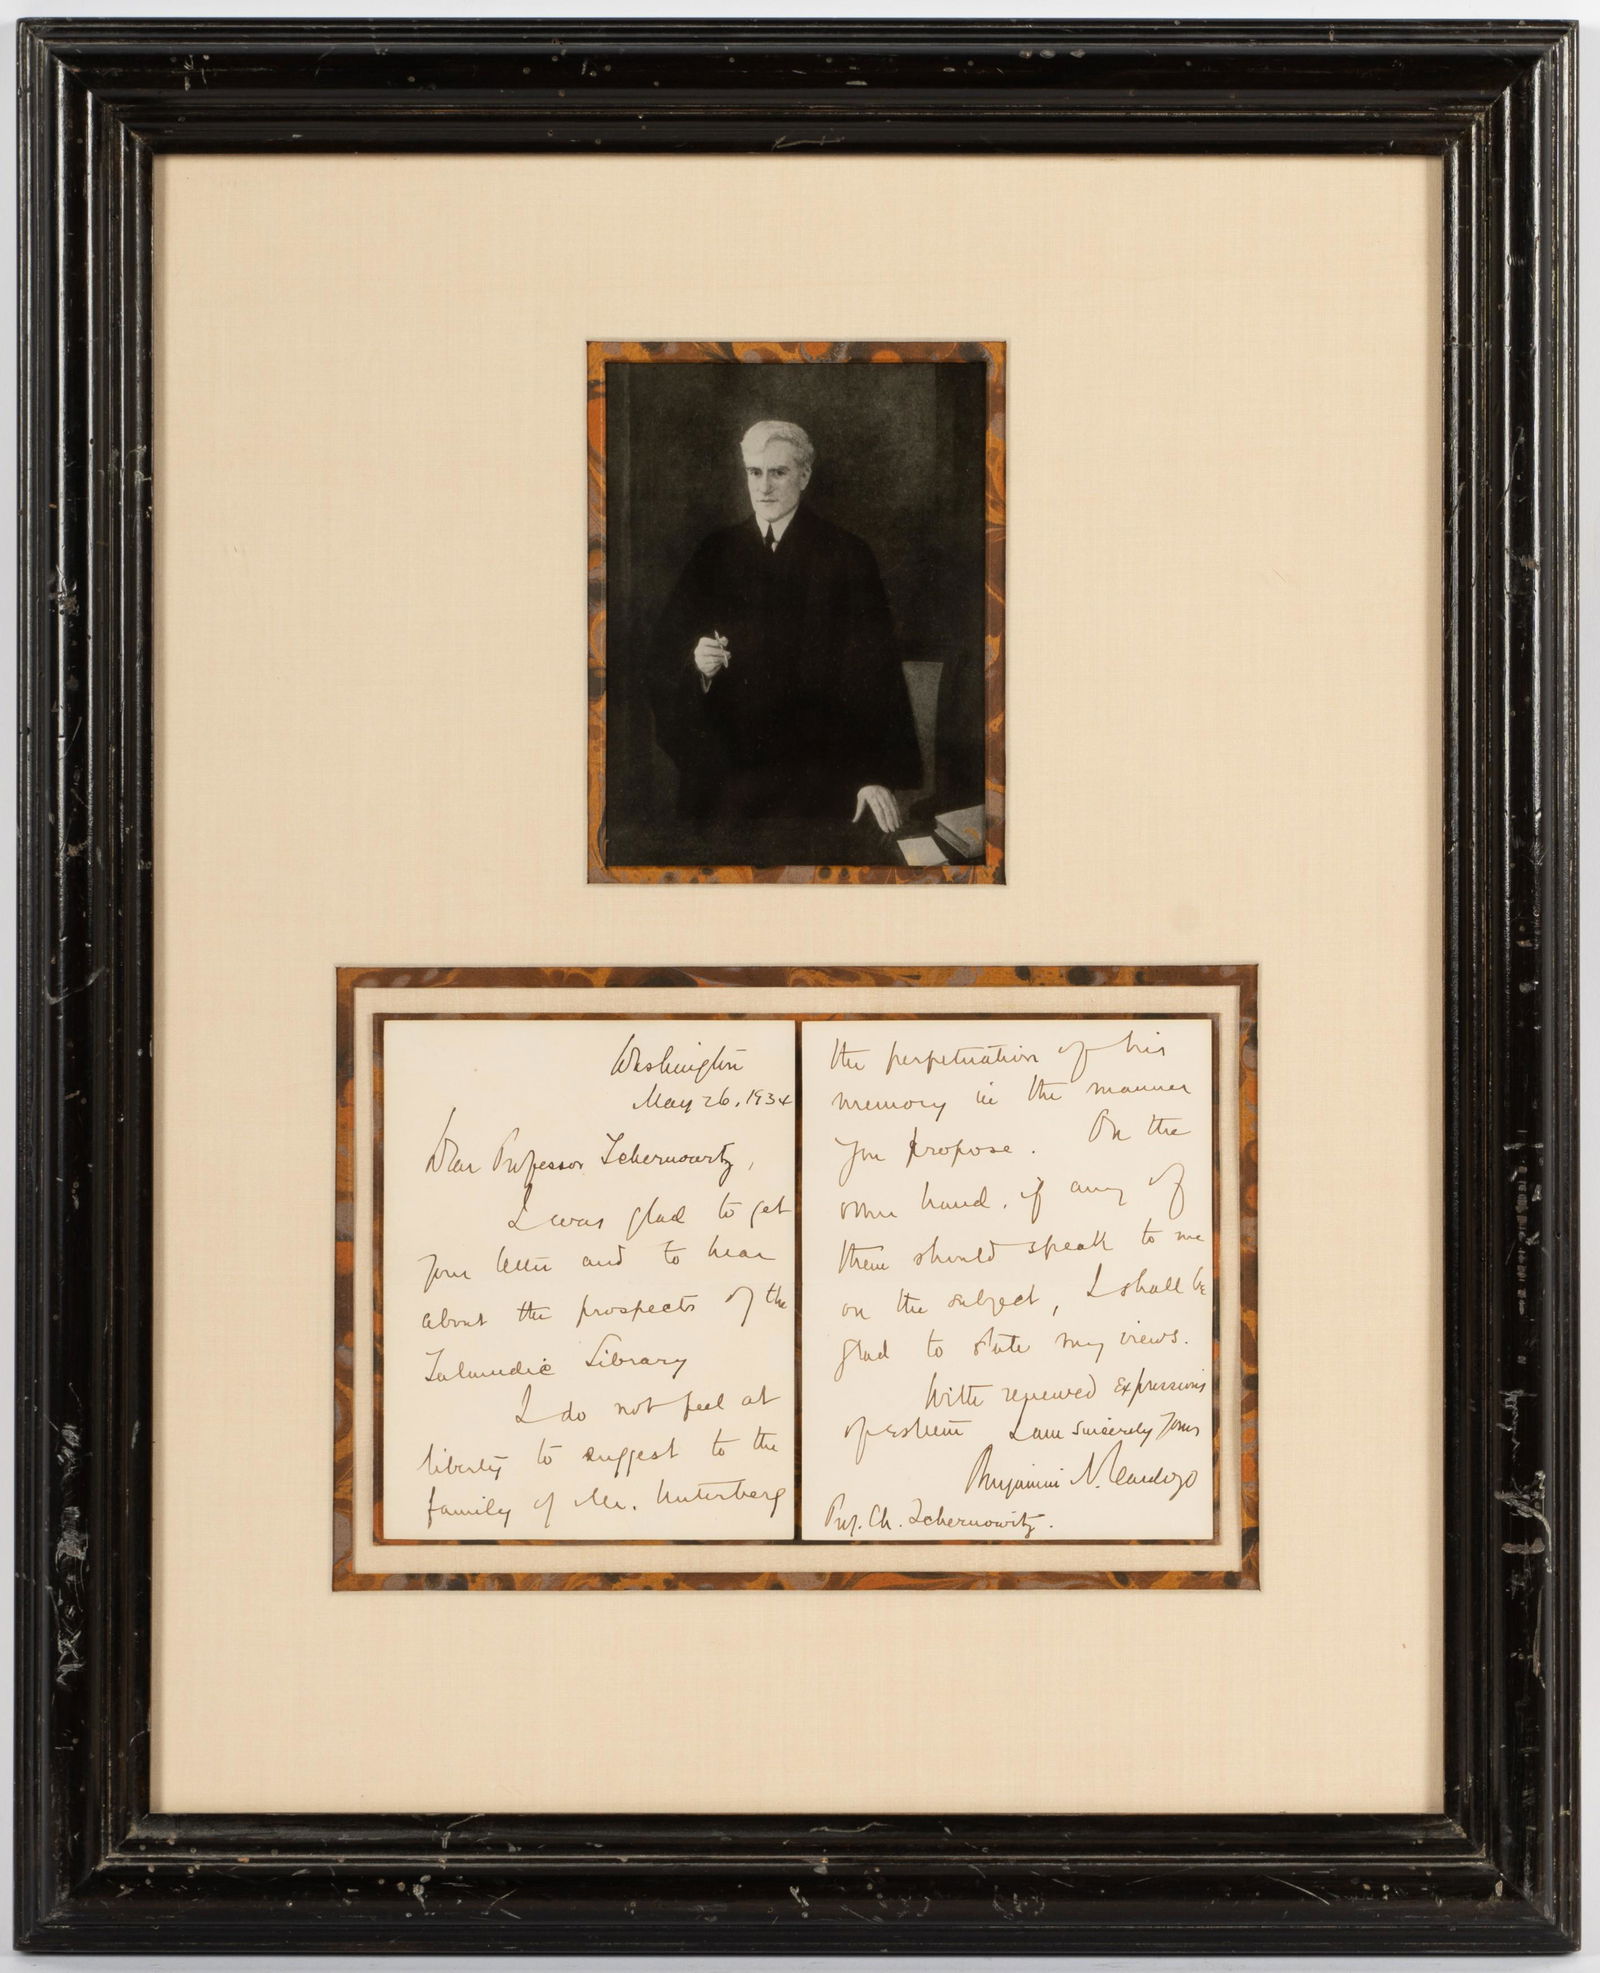 Washington
May 26, 1934
Dear Professor Tchernowitz,
I was glad to get
your letter and to hear
about the prospects of the
Talmudic Library
I do not feel at
liberty to suggest to the
family of Mr. Unterberg
the perpetuation of his
memory in the manner
you propose. On the
other hand, if any of
them should speak to me
on the subject, I shall be
glad to state my views.
With renewed expressions
of esteem I am Sincerely Yours
Benjamin N. Cardozo
Prof. Ch. Tchernowitz.